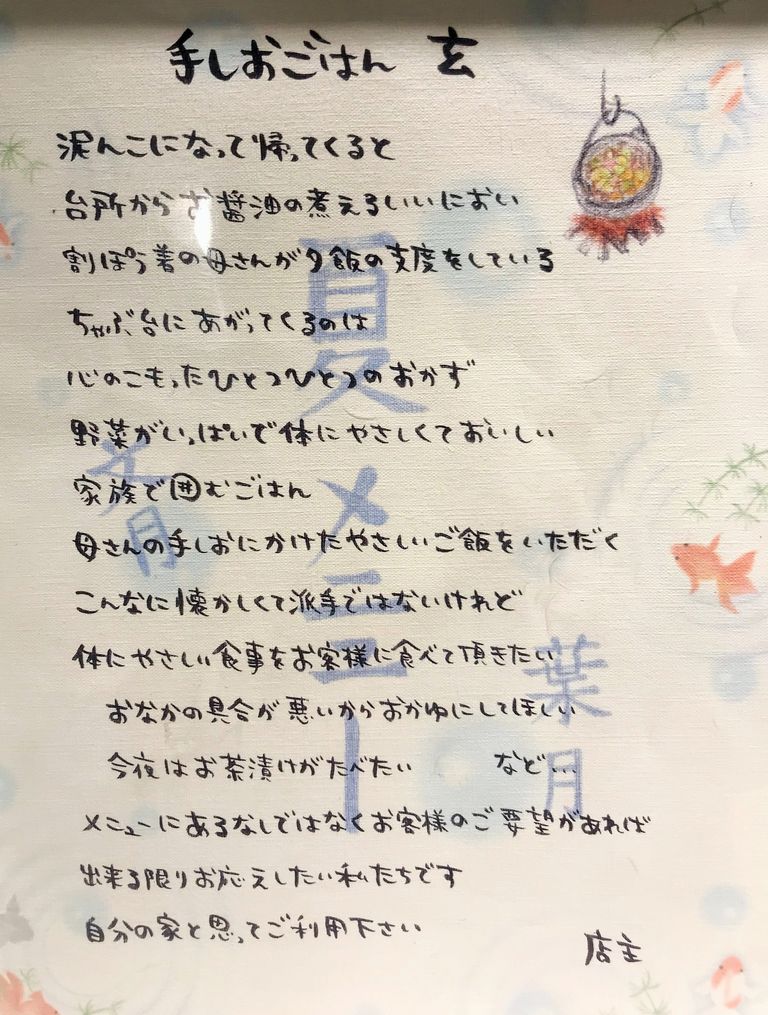 手しおごはん 玄
泥んこになって帰ってくると
台所からお醤油の煮えるいいにおい
割ぽう着の母さんが夕飯の支度をしている
ちゃぶ台にあがってくるのは
心のこもったひとつひとつのおかず
野菜がいっぱいで体にやさしくておいしい
家族で囲むごはん
母さんの手しおにかけたやさしいご飯をいただく
こんなに懐かしくて派手ではないけれど
体にやさしい食事をお客様に食べて頂きたい
おなかの具合が悪いからおかゆにしてほしい
今夜はお茶漬けがたべたい など…
メニューにあるなしではなくお客様のご要望があれば
出来る限りお応えしたい私たちです
自分の家と思ってご利用下さい
店主
夏メニュー
文月
葉月